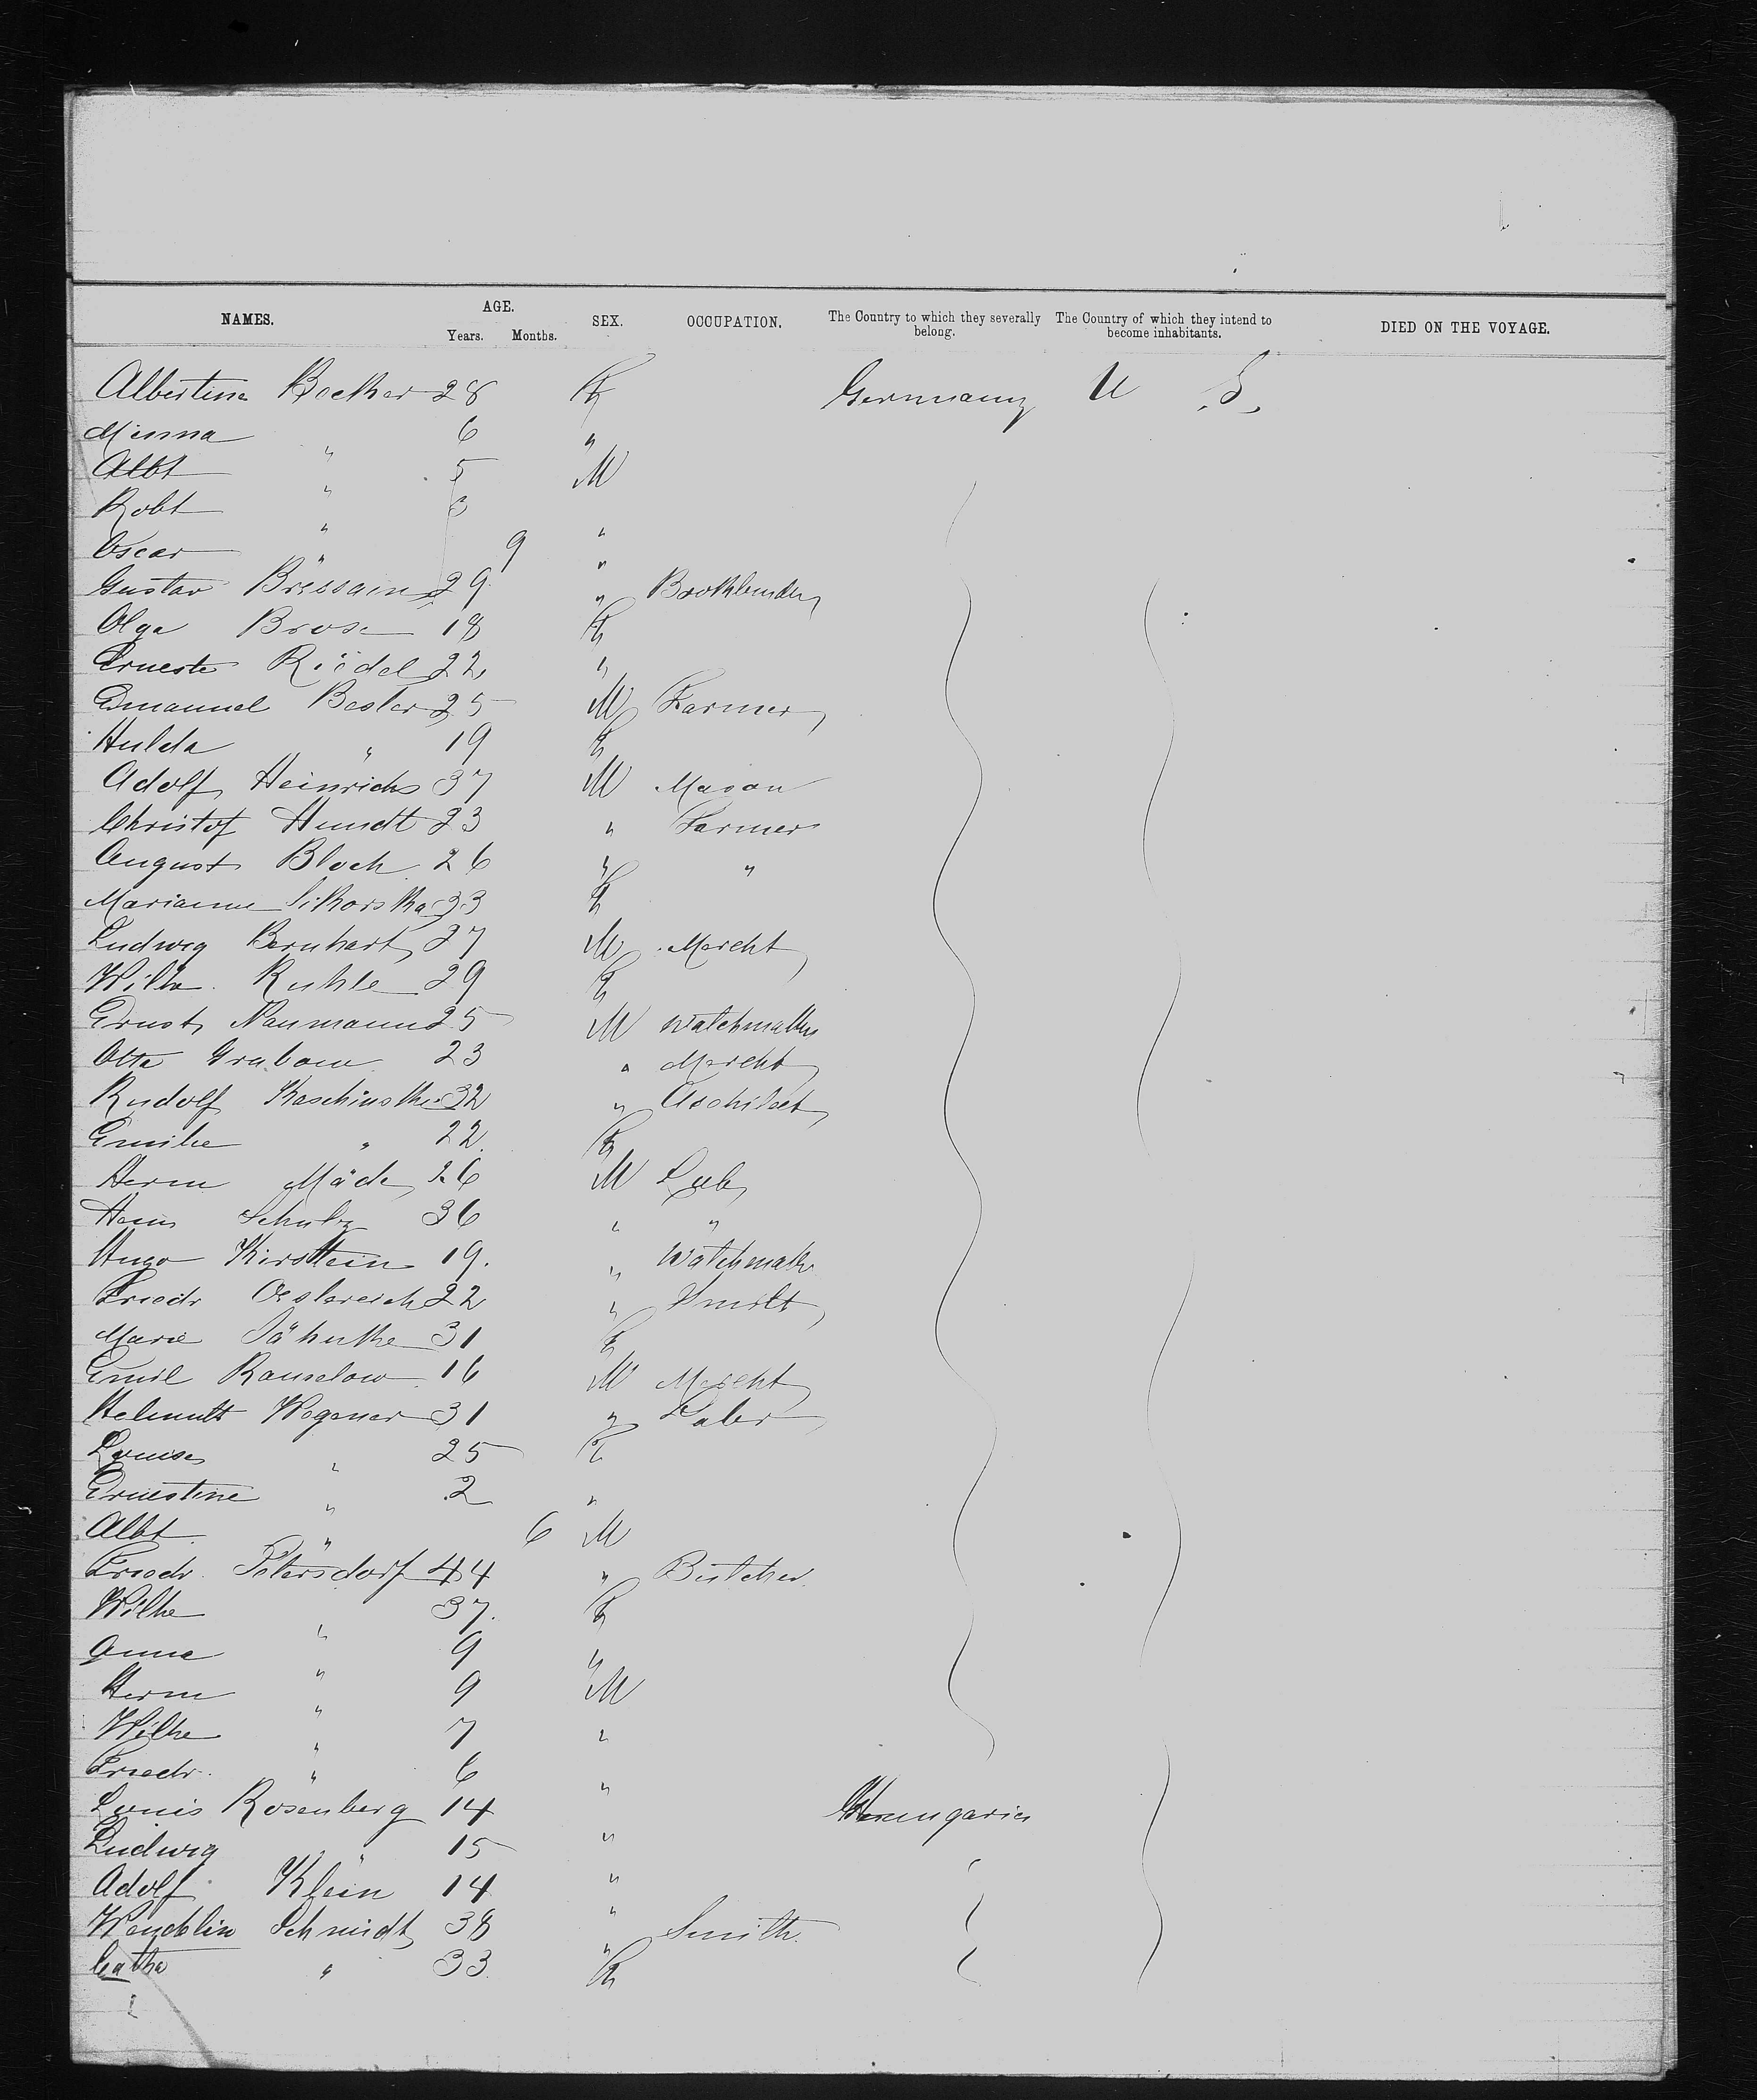 NAMES. AGE. SEX. OCCUPATION. The Country to which they severally belong. The Country of which they intend to become inhabitants. DIED ON THE VOYAGE.
Years. Months.
Albertine Boelker 28 F Germany U. S.
Minna " 6 "
Albt " 5 M
Robt " 3 "
Oscar " 9 "
Gustav 29 "
Olga Brose 18 F
Erneste Riedel 22 "
Emanuel Besler 25 M Farmer
Hulda " 19 F
Adolf Heinrichs 37 M Mason
Christof Hundt 23 " Farmer
August Bloch 26 " "
Marianne Sikorska 33 F
Ludwig Bernhart 27 M Mercht
Wilhe Ruhle 29 F
Ernst Naumann 25 M Watchmaker
Otto Grabow 23 " Mercht
Rudolf 32 " Architect
Emilie " 22 F
Herm Mäde 26 M Lab
Schulz 36 " "
Hugo Kirsttein 19. " Watchmak
Friedr Oestereich 22 " Smitt
Marie Jähnke 31 F
Emil Ranselow 16 M Mercht
Helmuth Wegener 31 " Labr
Louise " 25 F
Ernestine " 2 "
Albt " 6 M
Friedr. Petersdorf 44 " Butcher
Wilhe " 37. F
Anna " 9 "
Herm " 9 M
Wilhe " 7 "
Friedr. " 6 "
Louis Rosenberg 14 " Hungaria
Ludwig " 15 "
Adolf Klein 14 "
Wendelin Schmidt 38 " Smith.
Cathe " 33 F